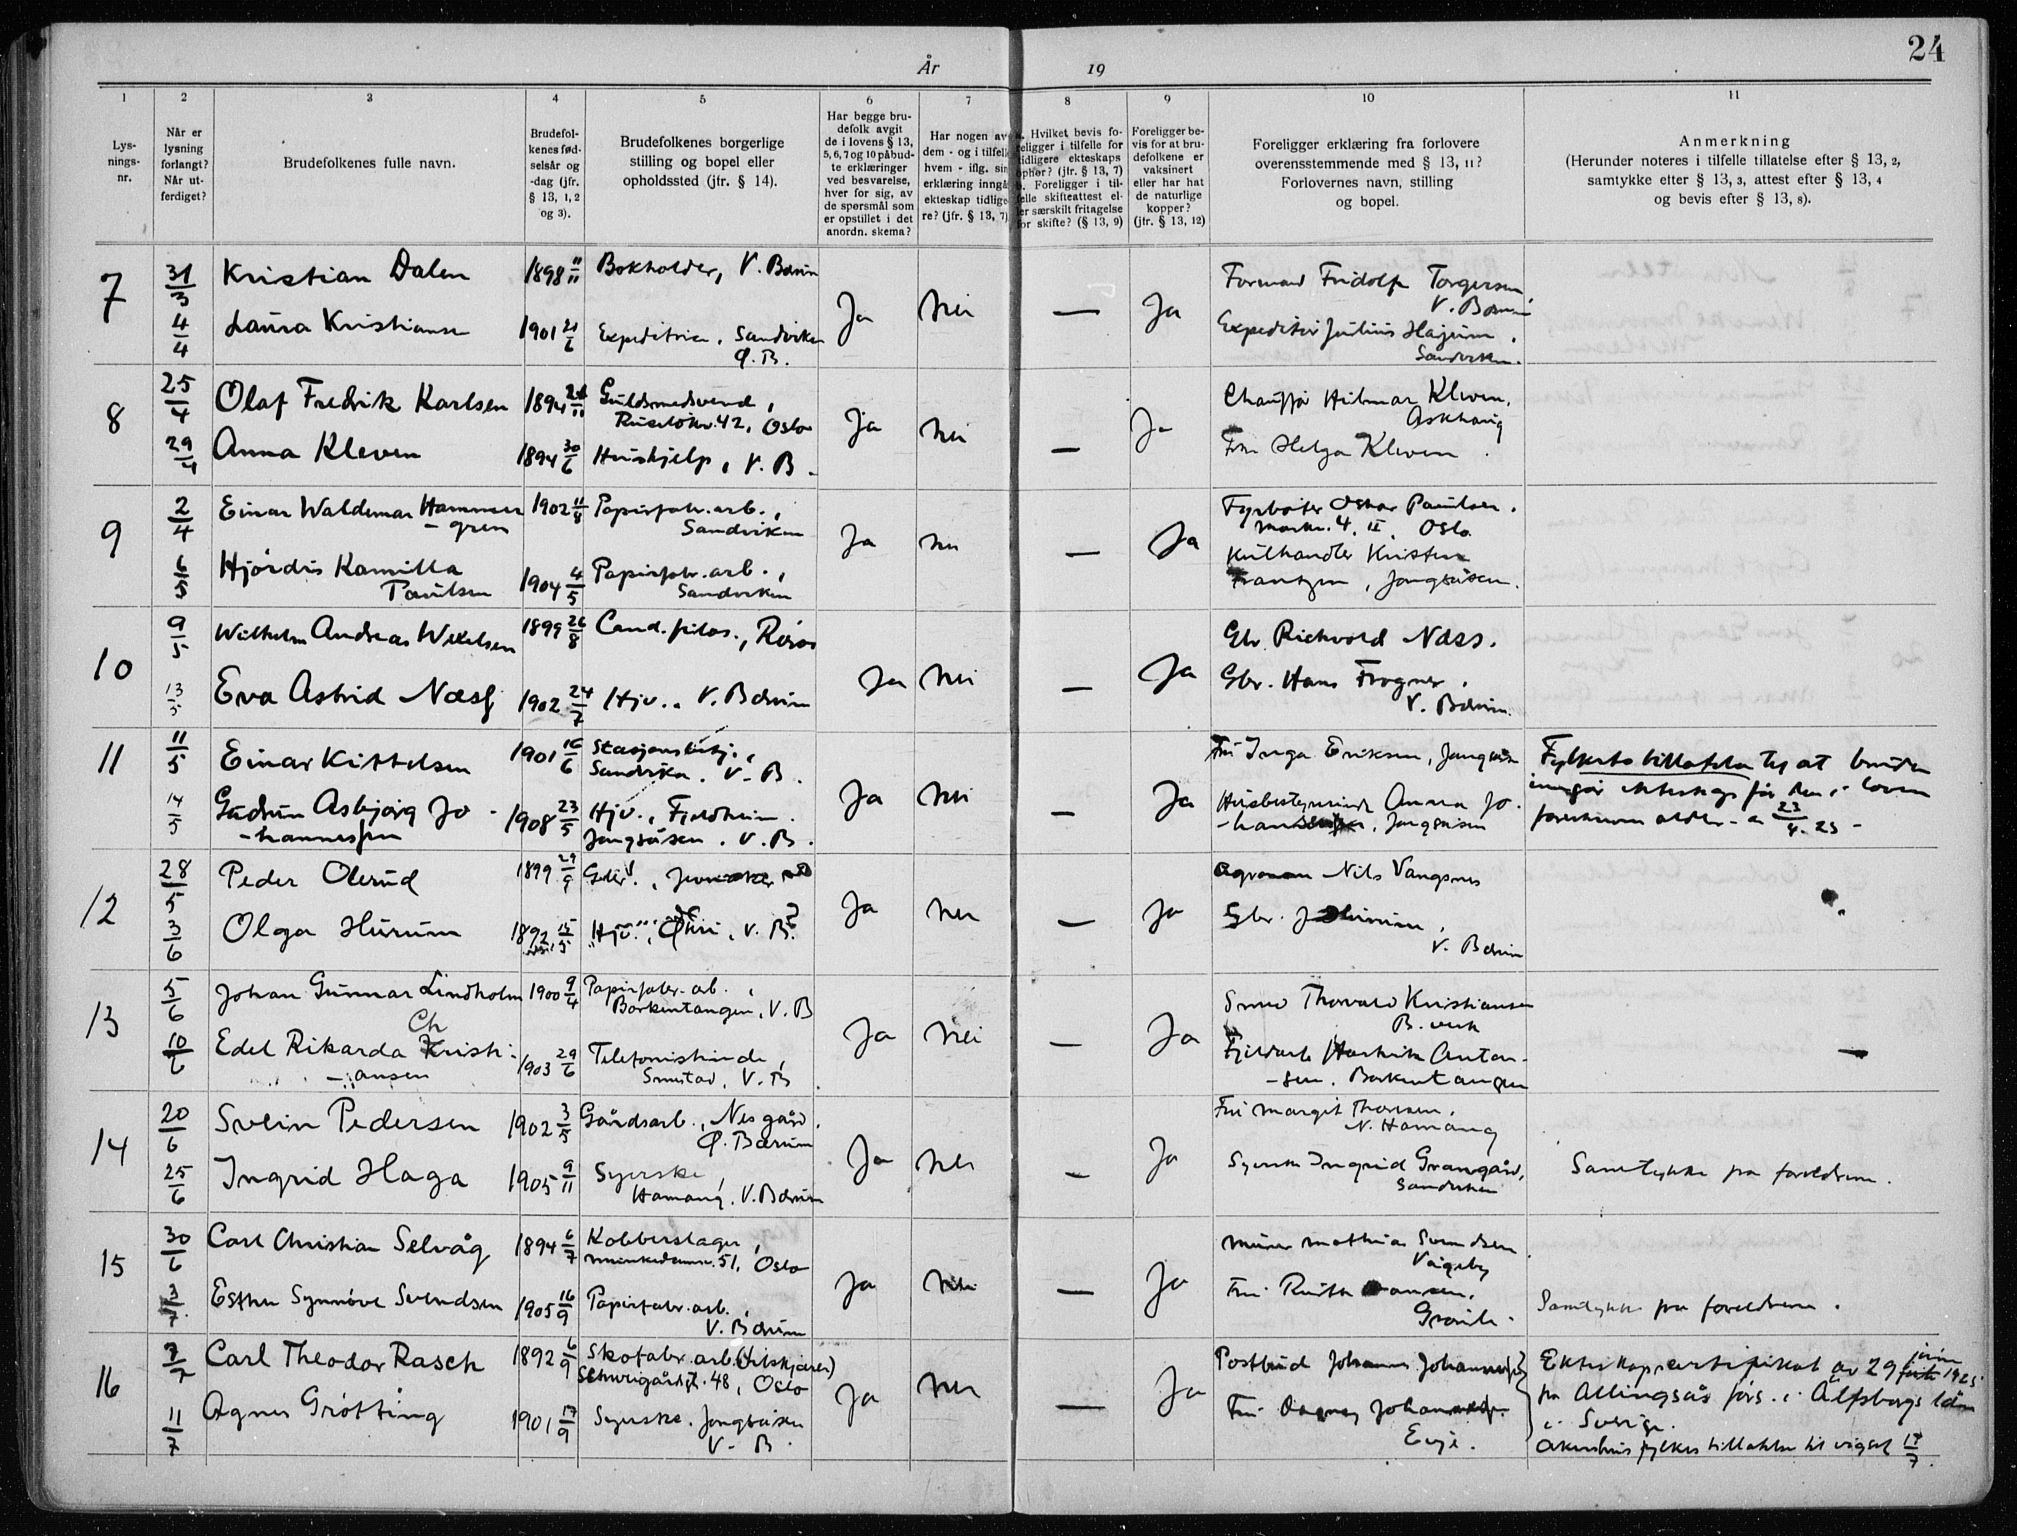 24
År 19
1 2 3 4 5 6 7 8 9 10 11
Lys-
nings-
nr.
Når er
lysning
forlangt?
Når ut-
ferdiget?
Brudefolkenes fulle navn.
Brudefol-
kenes fød-
selsår og
-dag (jfr.
§ 13, 1, 2
og 3).
Brudefolkenes borgerlige
stilling og bopel eller
opholdssted (jfr. § 14).
Har begge bru-
defolk avgit
de i lovens § 13,
5, 6, 7 og 10 påbud-
te erklæringer
ved besvarelse,
hver for sig, av
de spørsmål som
er opstillet i det
anordn. skema?
Har nogen av
dem - og i tilfelle
hvem - iflg. sin
erklæring inngå
ekteskap tidlige-
re? (jfr. § 13, 7)
Hvilket bevis fo-
religger i tilfelle for
tidligere ekteskaps
ophør? (jfr. § 13, 7)
b. Foreligger i til-
felle skifteattest el-
ler særskilt fritagelse
for skifte? (§ 13, 9)
Foreligger be-
vis for at bru-
defolkene er
vaksinert
eller har hat
de naturlige
kopper?
(jfr. § 13, 12)
Foreligger erklæring fra forlovere
overensstemmende med § 13, 11?
Forlovernes navn, stilling
og bopel.
Anmerkning
(Herunder noteres i tilfelle tillatelse efter § 13, 2,
samtykke efter § 13, 3, attest efter § 13, 4
og bevis efter § 13, 8).
7
31/3
4/4
Kristian Dalen
Laura Kristiansen
1898 11/11
1901 21/6
Bokholder, V. Bærum
Expeditrice, Sandviken
Ø. B.
Ja Nei — Ja
Formand Fridolf Torgersen,
V. Bærum
Expeditør Julius
Sandviken.
8
25/4
29/4
Olaf Fredrik Karlsen
Anna Kleven
1894
1894 30/6
Guldsmedsvend,
42, Oslo
Hushjelp, V. B.
Ja Nei — Ja
Chauffør Hilmar Kleven,
Askhaug
Fru Helga Kleven
9
2/4
6/5
Einar Waldemar Hammer
- gren
Hjørdis Kamilla
Paulsen
1902 11/8
1904 4/5
Papirfabr. arb.,
Sandviken
Papirfabr. arb.,
Sandviken
Ja Nei — Ja
Fyrbøter Oskar Paulsen.
4, II, Oslo
Kulhandler Kristen
Frantzen, Jongsåsen.
10
9/5
13/5
Wilhelm Andreas Wexelsen
Eva Astrid Næss
1899 26/8
1902 24/7
Cand. filos., Røros
Hjv., V. Bærum
Ja Nei — Ja
Gbr. Richvold Næss.
Gbr. Hans Frogner,
V. Bærum.
11
11/5
14/5
Einar Kittelsen
Gudrun Asbjørg Jo-
-hannessen
1901 16/6
1908 23/5
Stasjonsbetj.,
Sandvika. V. B.
Hjv., Fjeldheim.
Jongsåsen. V. B.
Ja Nei — Ja
Fru Inga Eriksen, Jongsåsen
Husbestyrerinde Anna Jo-
-hannessen, Jongsåsen
Fylkets tillatelse til at bruden
inngår ekteskap før den i loven
foreskrevne alder - a 23/4. 25 -
12
28/5
3/6
Peder Olerud
Olga Hurum
1899 29/9
1892 15/5
Gbr.,
"Hjv.", V. B.
Ja Nei — Ja
Agronom Nils Vangsnes
Gbr. J Hurum,
V. Bærum
13
5/6
10/6
Johan Gunnar Lindholm
Ch
Edel Rikarda Kristi-
- ansen
1900 9/4
1903 29/6
Papirfabr. arb.,
Borkentangen, V. B
Telefonistinde,
Smestad, V. B.
Ja Nei — Ja
Smed Thorvald Kristiansen
B. verk
Antон-
-sen. Borkentangen
—
14
20/6
25/6
Svein Pedersen
Ingrid Haga
1902 3/5
1905 9/11
Gårdsarb., Nes gård,
Ø. Bærum
Syerske,
Hamang, V. Bærum
Ja Nei — Ja
Fru Margit Thoresen,
N. Hamang
Syerske Ingrid Grangård,
Sandviken
Samtykke fra foreldrene.
15
30/6
3/7
Carl Christian Selvåg
Esther Synnöve Svendsen
1894 6/7
1905 16/9
Kobberslager,
Munkedamsv. 51, Oslo
Papirfabr. arb.,
V. Bærum
Ja Nei — Ja
Murer Mathias Svendsen
Fru Ruth Hansen,
Samtykke fra foreldrene.
16
7/7
11/7
Carl Theodor Rasch
Agnes Gröttting
1892 6/9
1901 17/9
Skofabr. arb. (tilskjærer)
Schweigårdsgt. 48, Oslo
Syerske. Jongsåsen
V. B.
Ja Nei — Ja
Postbud Johannes Johannessen
Fru Dagny Johannessen.
Evje.
Ekteskapscertifikat av 29 juni 1925
fra Allingsås förs. i Älfsborgs län
i Sverige.
Akershus fylkes tillatelse til vigsel 17/7.